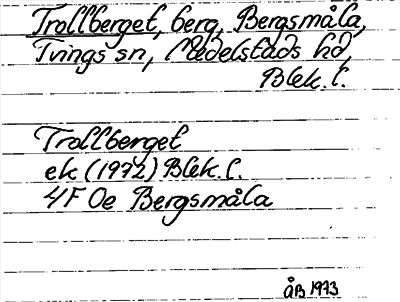 Trollberget, berg, Bergsmåla,
Tvings sn, Medelstads hd,
Blek. l.
Trollberget
ek (1972) Blek. l.
4F 0e Bergsmåla
ÅB 1973